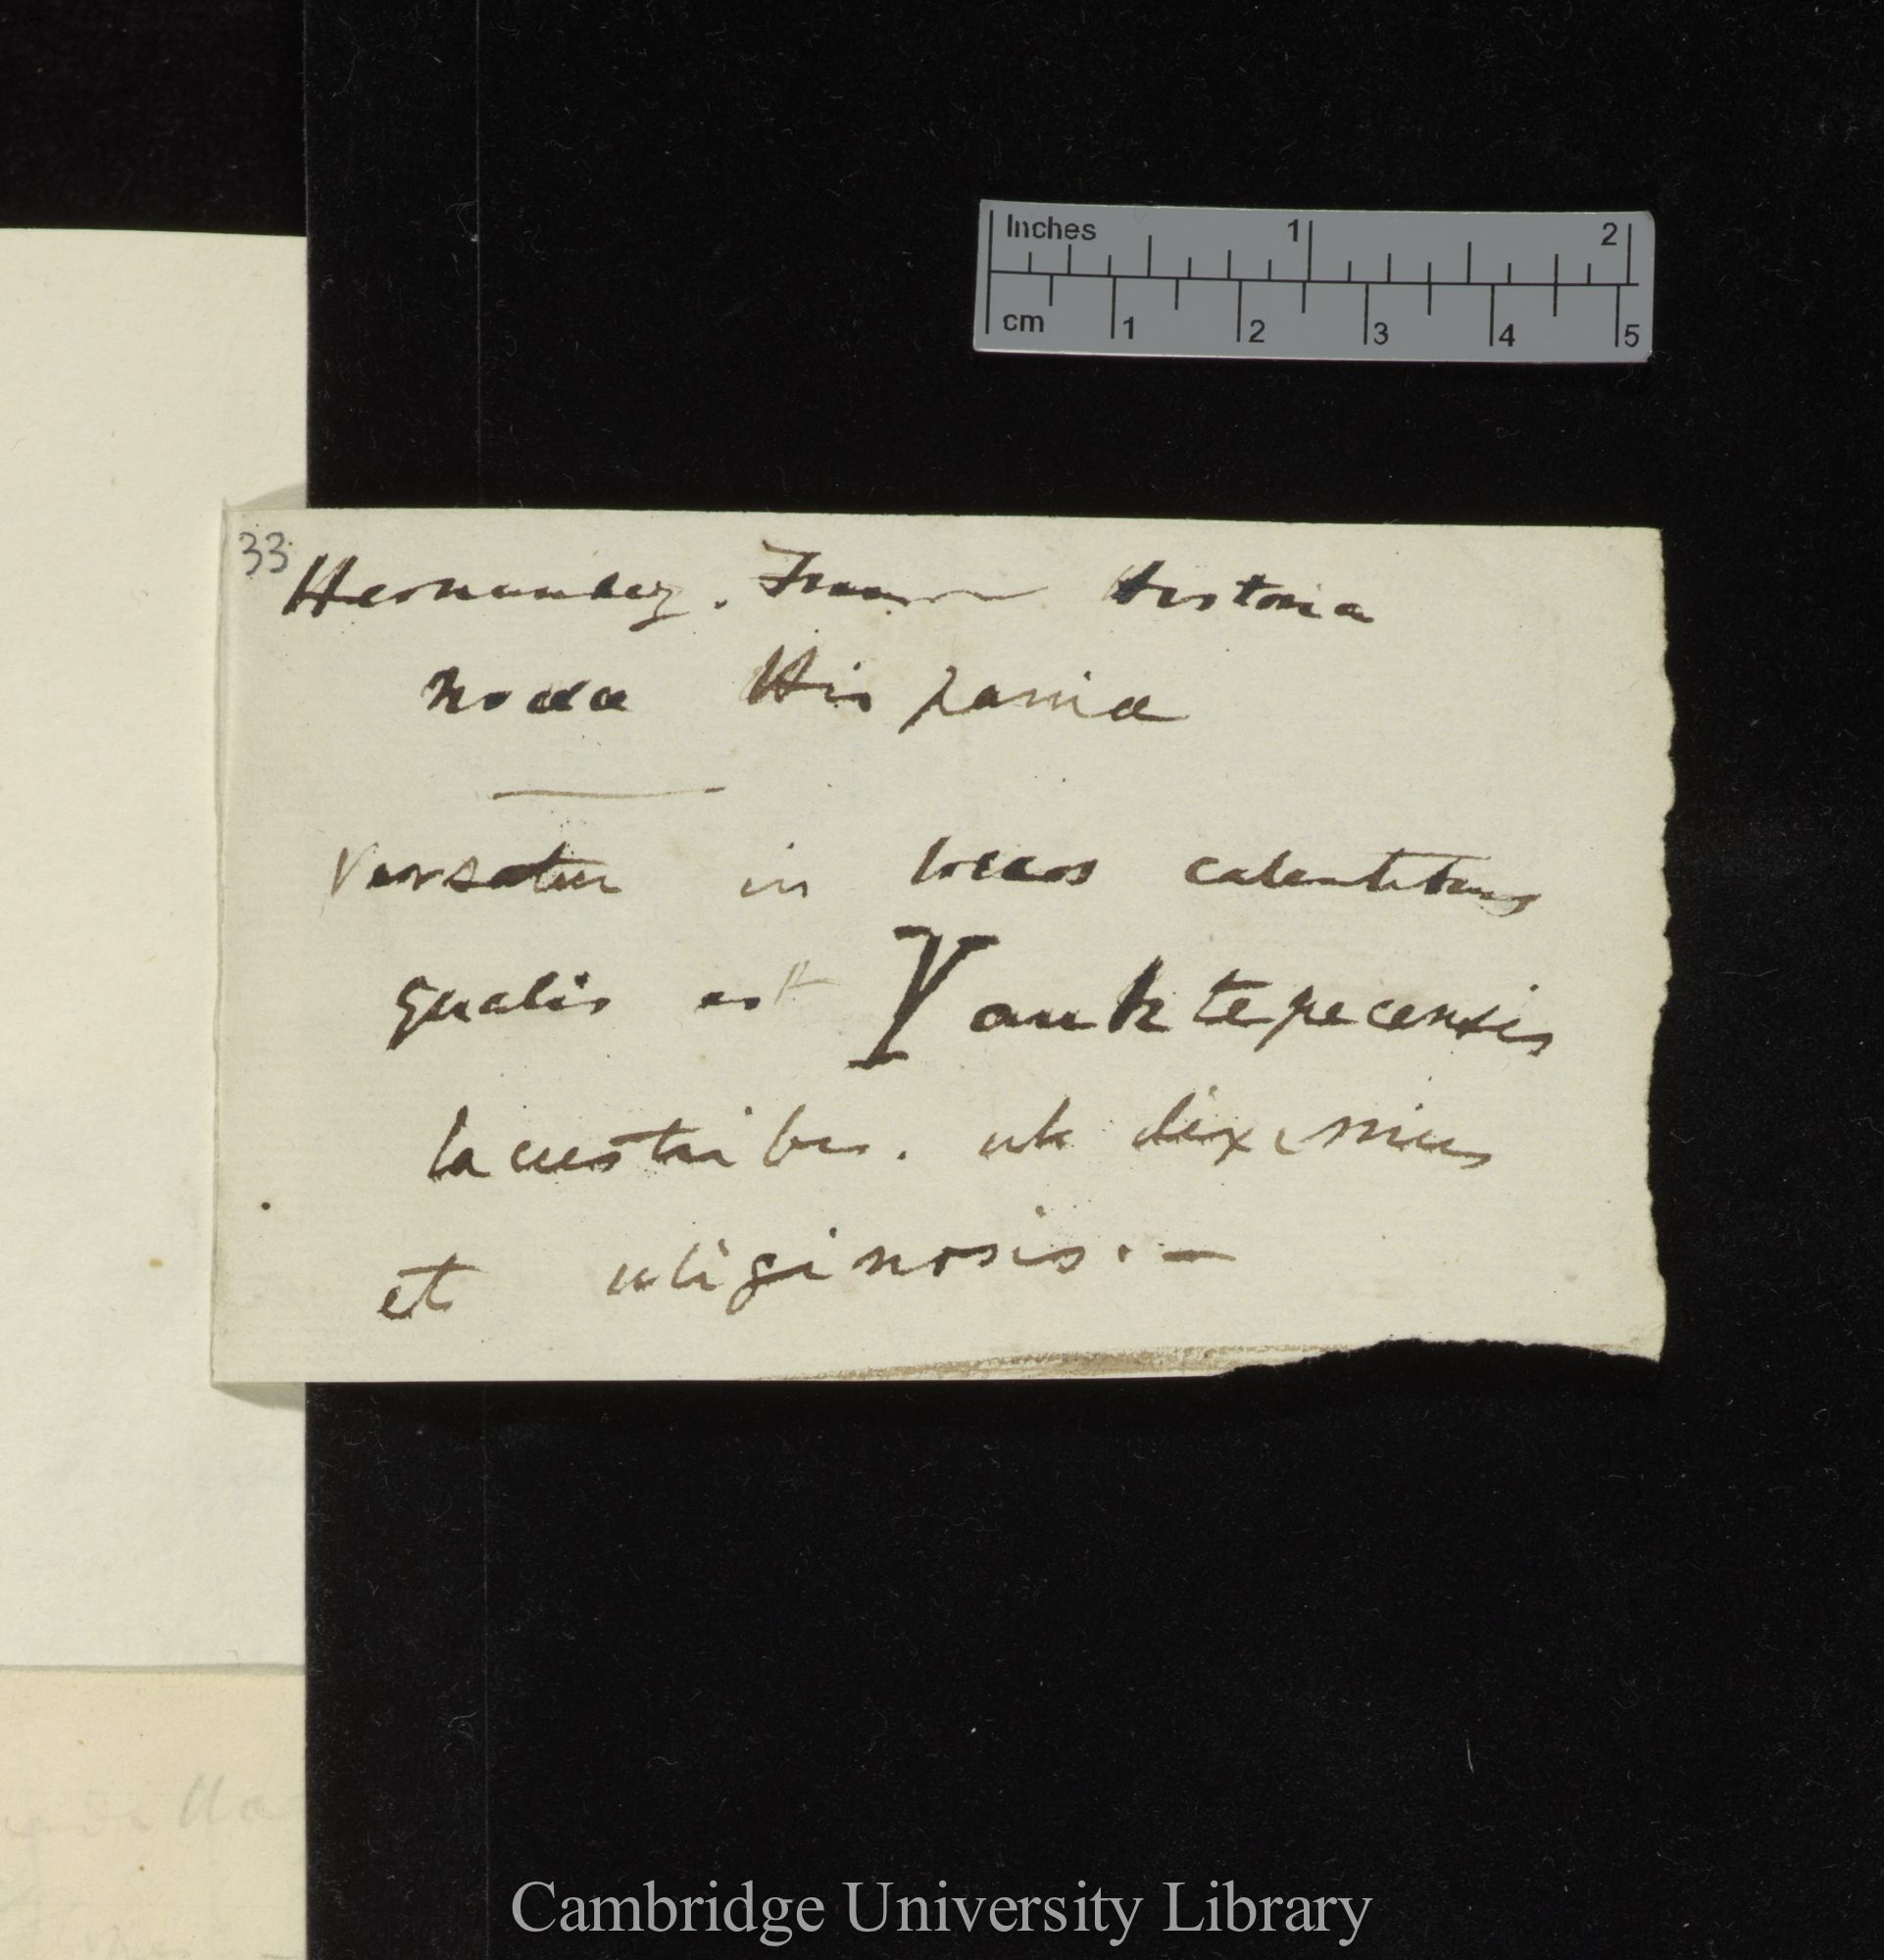 Inches 1 2
cm 1 2 3 4 5
33
Hernandez. Historia
novae Hispaniae
Versatur in locos calentibus
qualis est Yauhtepecensis
lacustribus. ut diximus
et uliginosis. —
Cambridge University Library